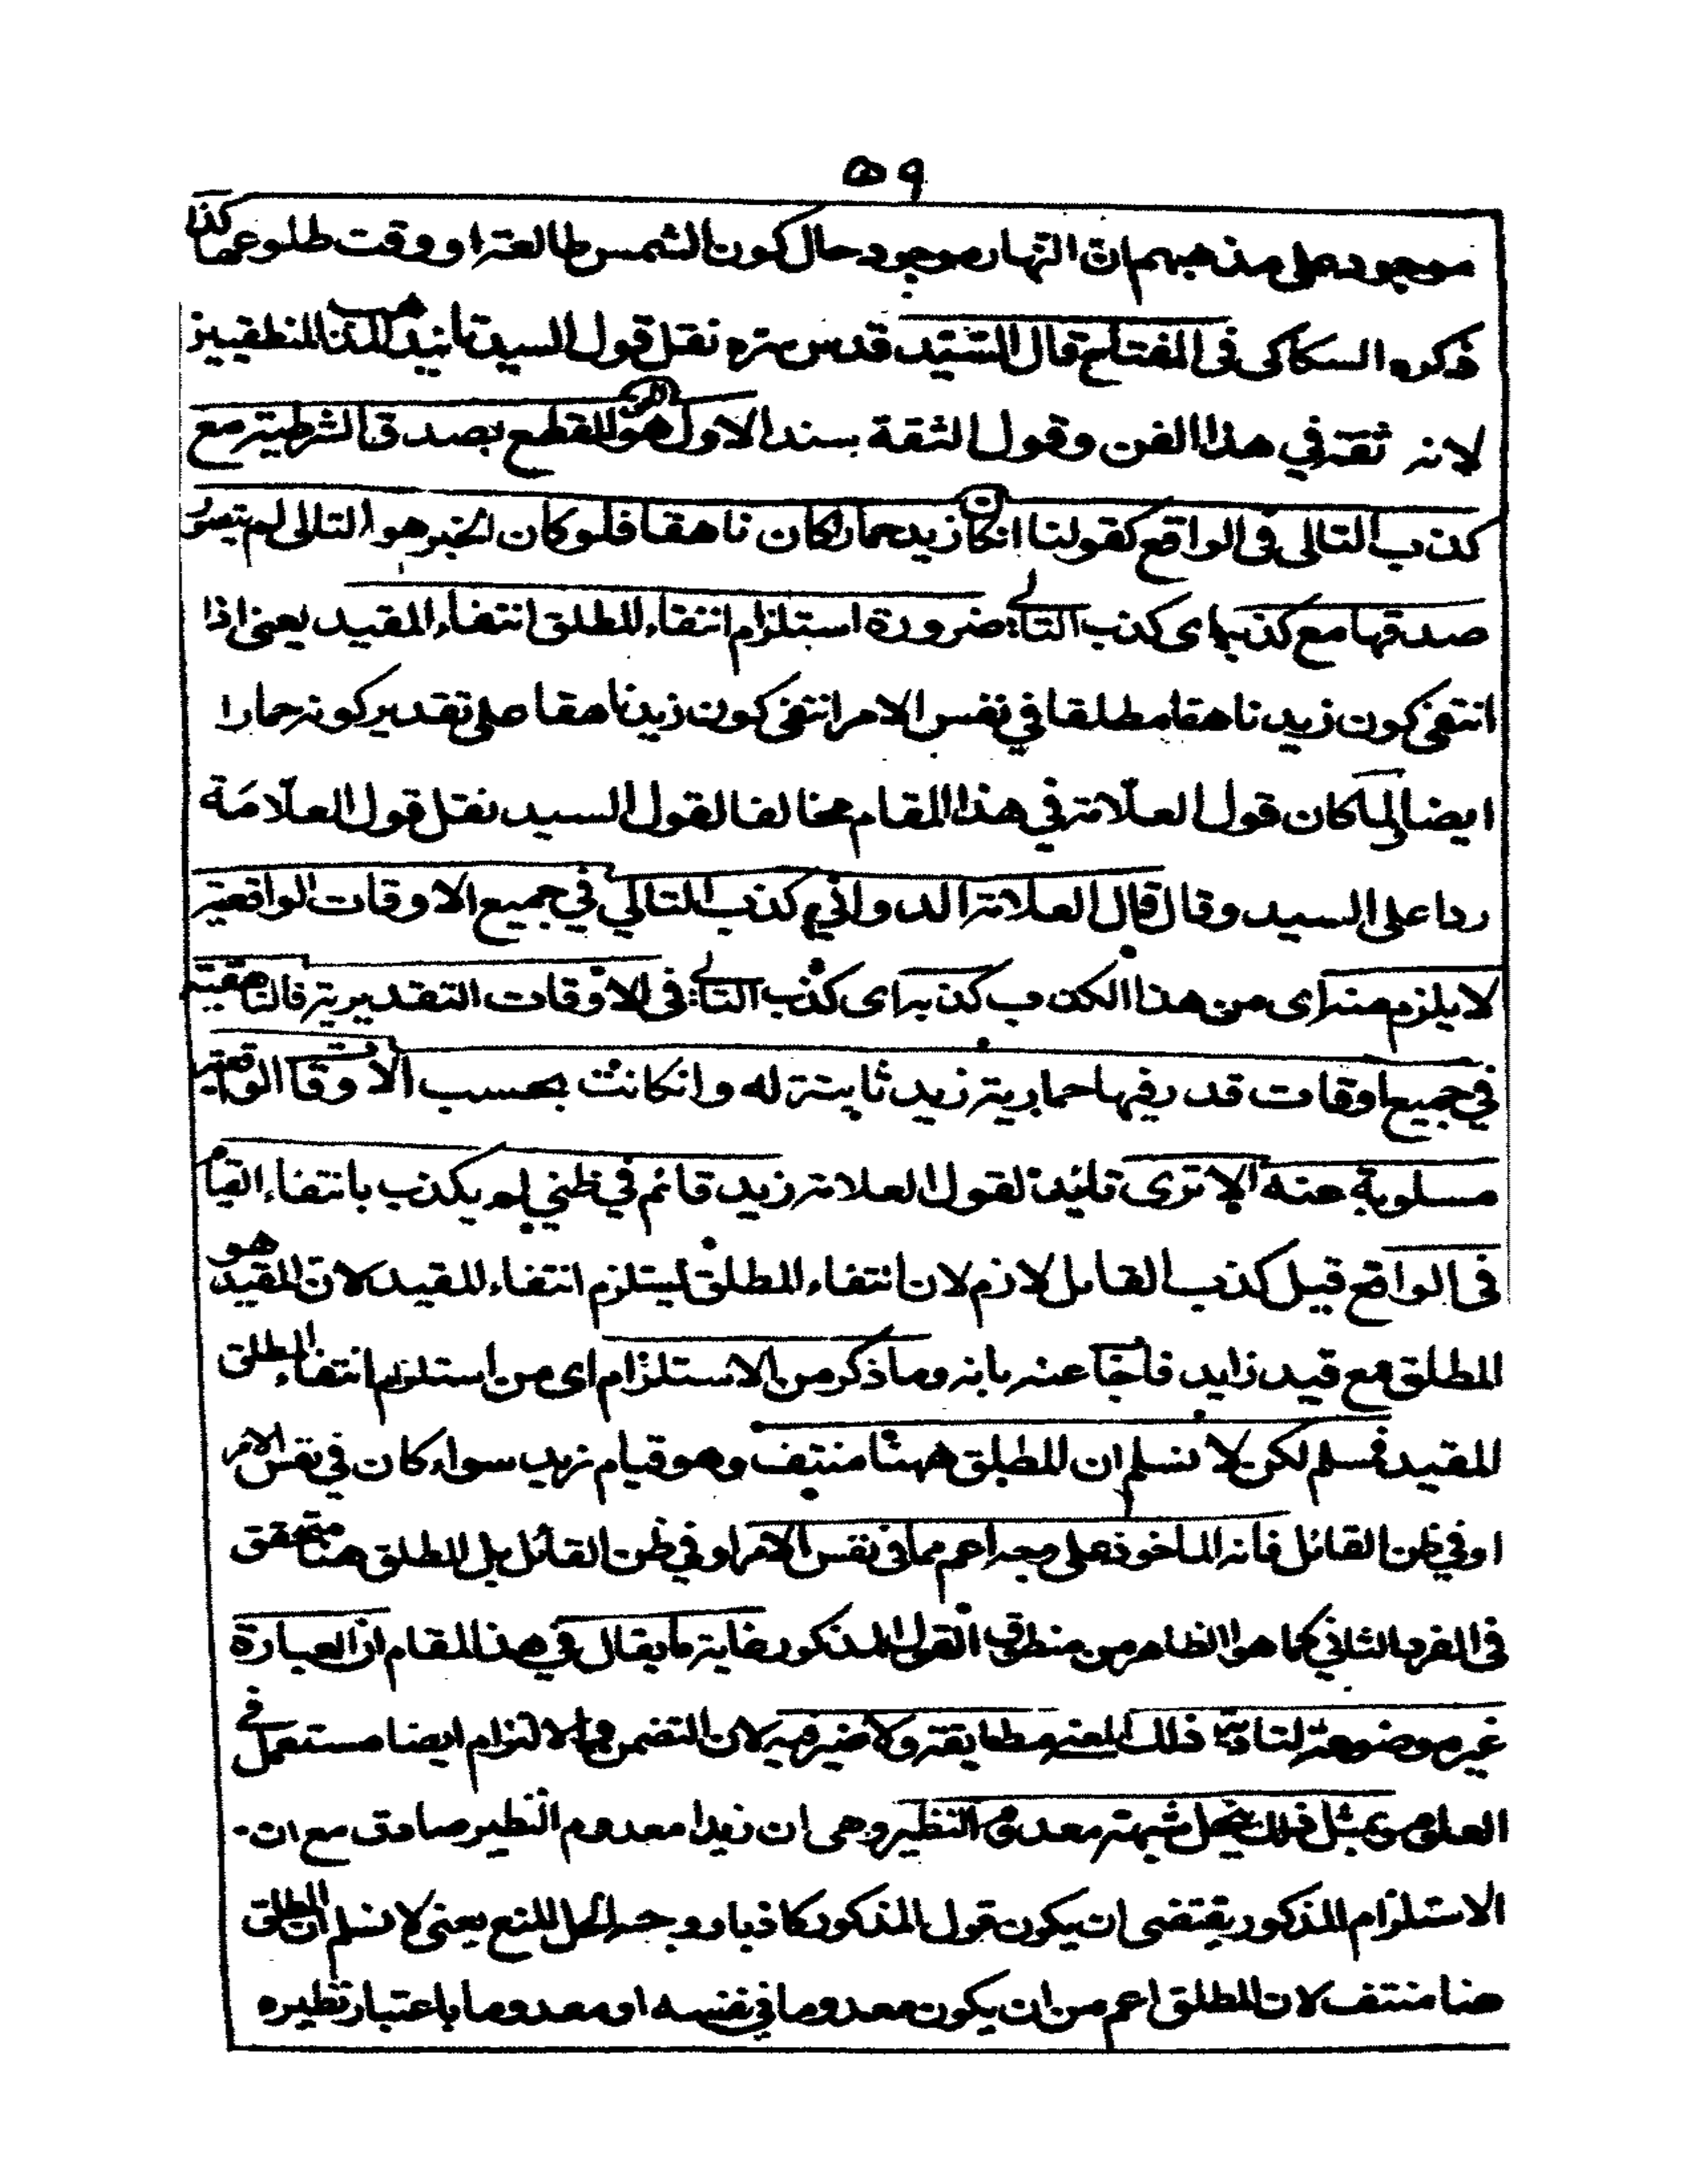 ٥٩
موجود على مذهبهم ان النهار موجود حال كون الشمس طالعة او وقت طلوعها كذا
ذكره السكاكى فى المفتاح قال السيد قدس سره نقل قول السيد تائيد المذهب المنطقيين
لانه ثقة في هذا الفن وقول الثقة سند الاول هو الحق للقطع بصدق الشرطية مع
كذب التالى فى الواقع كقولنا ان كان زيد حمارا كان ناهقا فلو كان الخبر هو التالى لم يتصور
صدقها مع كذبها اى كذب التالي ضرورة استلزام انتفاء المطلق انتفاء المقيد يعنى اذا
انتفى كون زيد ناهقا مطلقا في نفس الامر انتفى كون زيد ناهقا على تقدير كونه حمارا
ايضا لما كان قول العلّامة في هذا المقام مخالفا لقول السيد نقل قول العلّامة
ردا على السيد وقال قال العلامة الدواني كذب التالي في جميع الاوقات الواقعية
لا يلزم منه اى من هذا الكذب كذبه اى كذب التالي فى الاوقات التقديرية فالناهقية
في جميع اوقات قدر فيها حمارية زيد ثابتة له وان كانت بحسب الاوقات الواقعية
مسلوبة عنه الا ترى تائيد لقول العلامة زيد قائم في ظني لم يكذب بانتفاء القيام
فى الواقع قيل كذب القائل لازم لان انتفاء المطلق يستلزم انتفاء المقيد لان المقيد هو
المطلق مع قيد زايد فاجاب عنه بانه وما ذكر من الاستلزام اى من استلزام انتفاء المطلق
المقيد فمسلم لكن لا نسلم ان المطلق ههنا منتف وهو قيام زيد سواء كان في نفس الامر
او في ظن القائل فانه الماخوذ على وجه اعم مما فى نفس الامر او في ظن القائل بل المطلق هنا متحقق
فى الفرد الثاني كما هو الظاهر من منطوق القول المذكور غاية ما يقال في هذا المقام ان العبارة
غير موضوعة لتادية ذلك المعنى مطابقة ولا ضير فيه لان التضمن والالتزام ايضا مستعمل في
العلوم وبمثل ذلك ينحل شبهة معدوم النظير وهى ان زيدا معدوم النظير صادق مع ان
الاستلزام المذكور يقتضى ان يكون قول المذكور كاذبا ووجه الحل المنع يعنى لا نسلم ان المطلق
هنا منتف لان المطلق اعم من ان يكون معدوما في نفسه او معدوما باعتبار نظيره